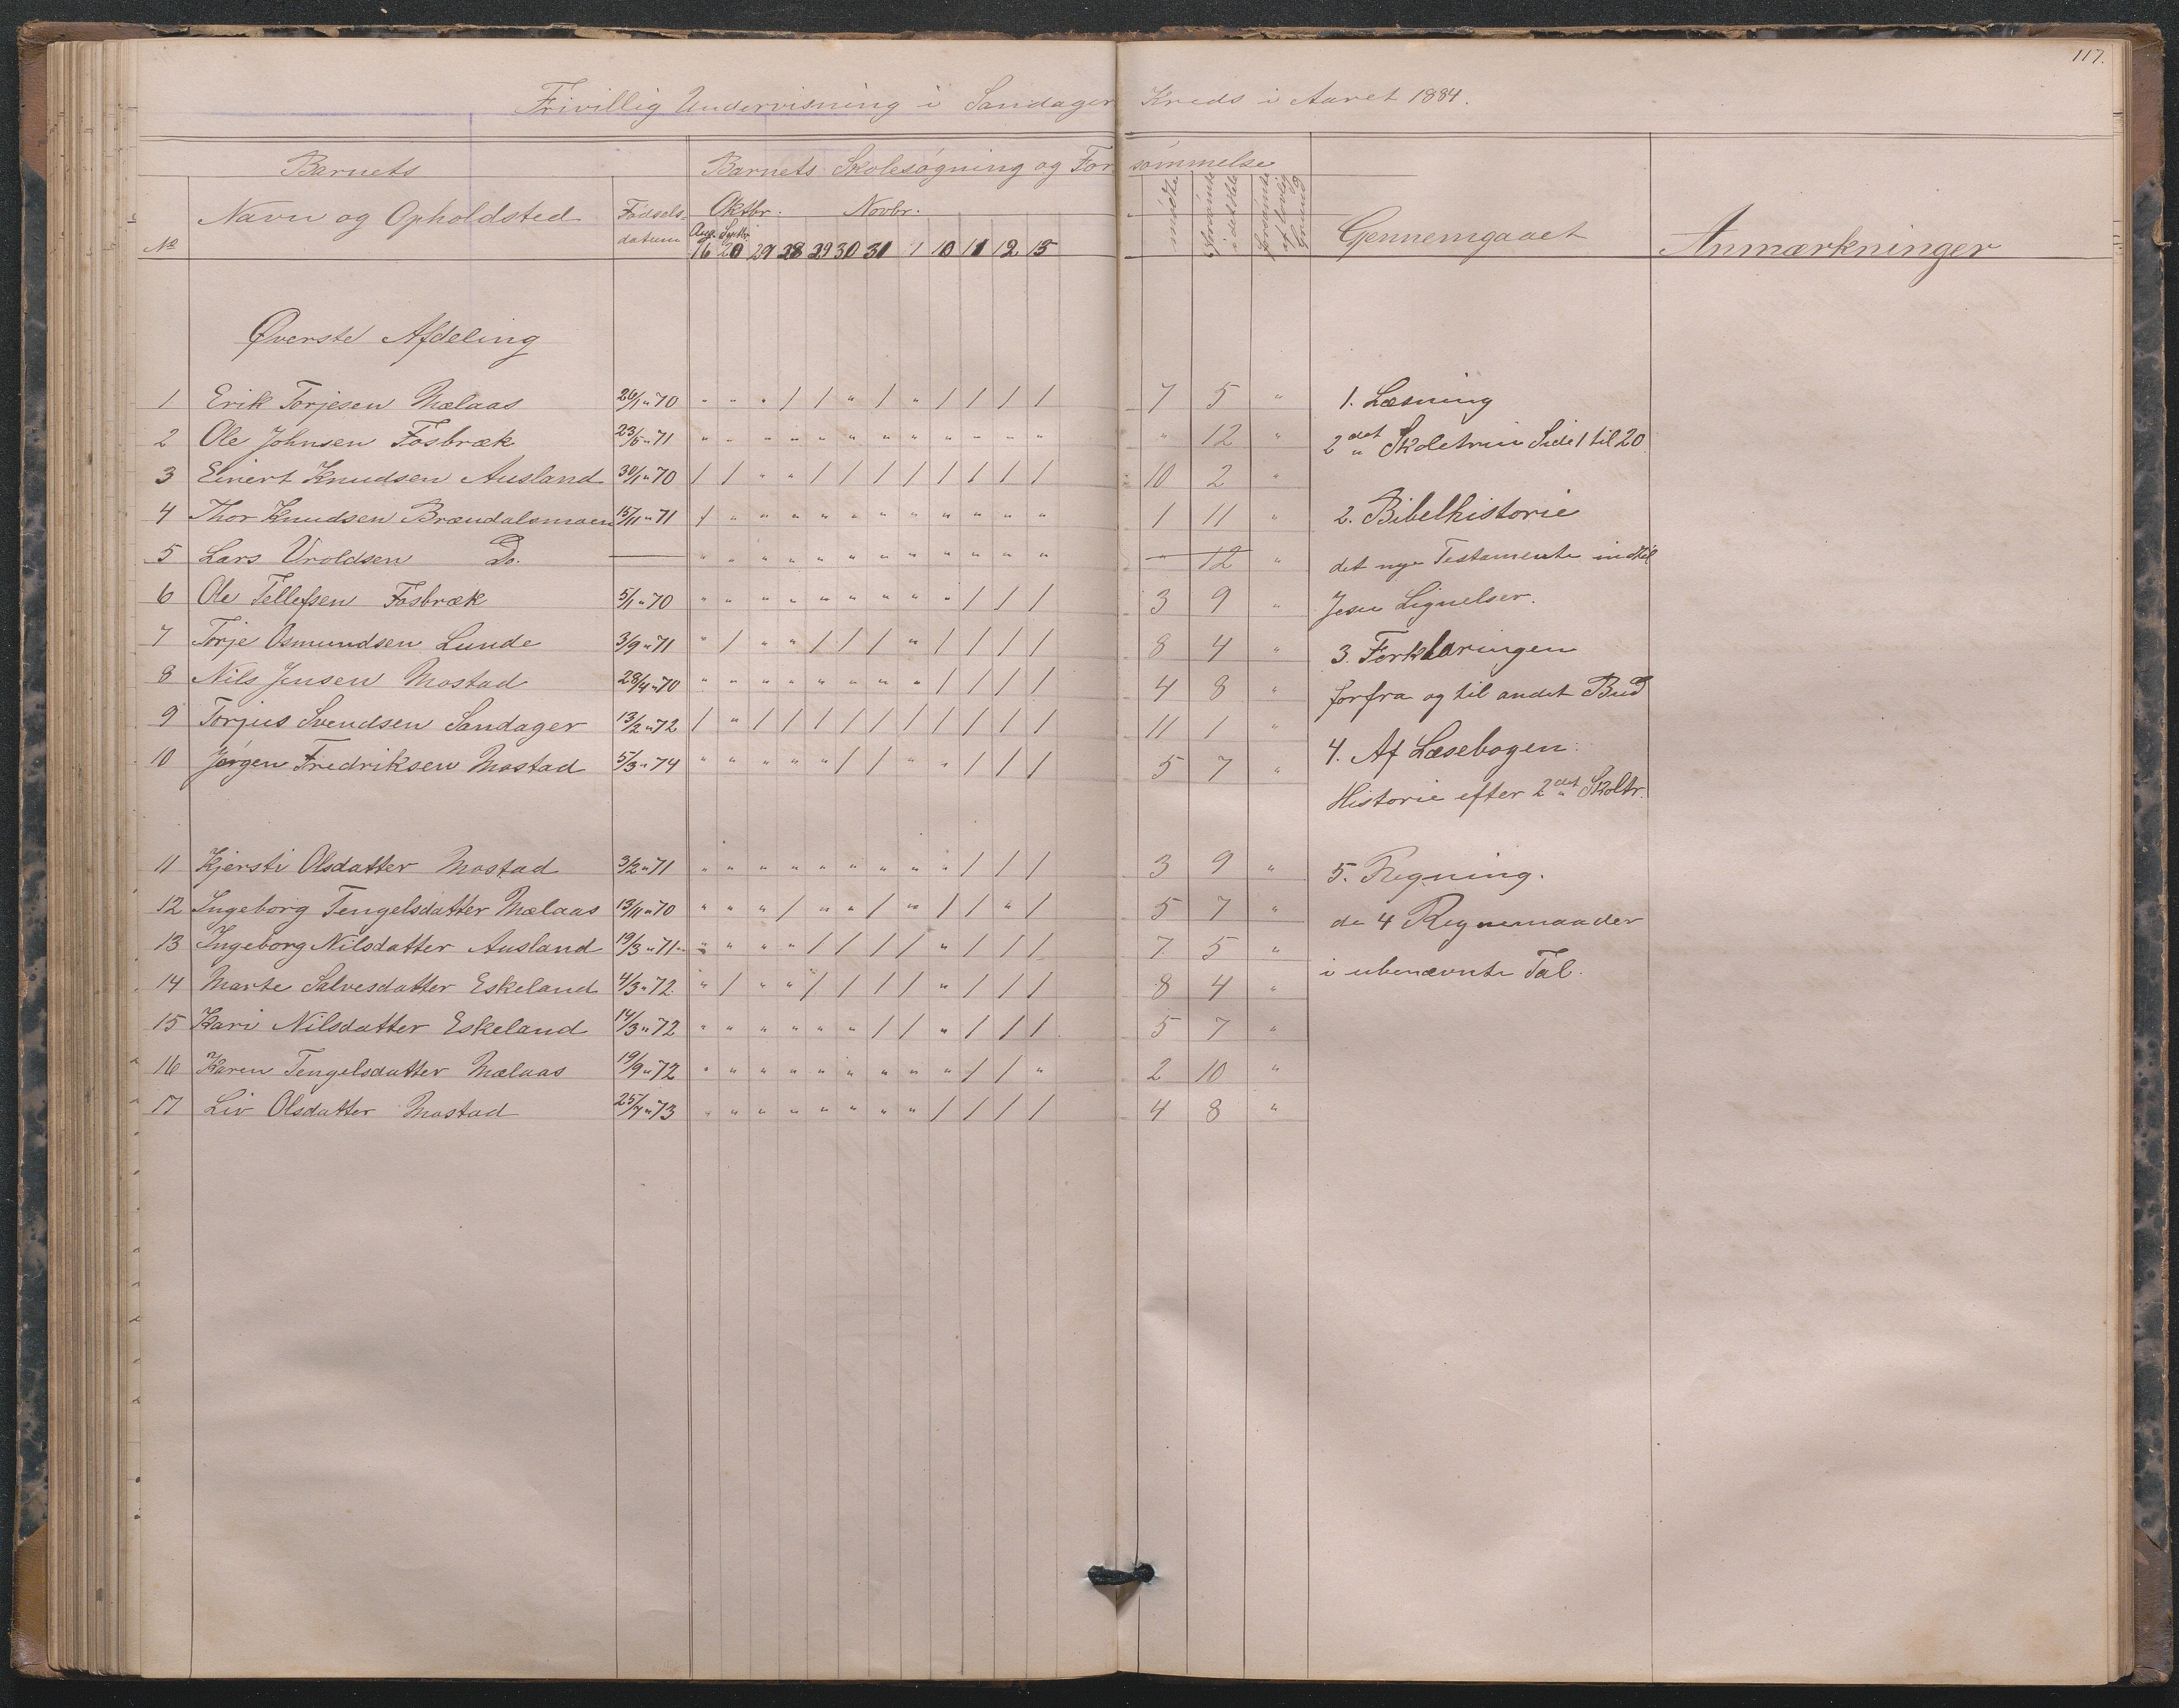 117.
Frivillig Undervisning i Sandager Kreds i Aaret 1884.
Barnets Barnets Skolesøgning og Forsømmelse
No Navn og Opholdsted Fødselsdatum Oktbr. Novbr. mødte Forsømte i det Hele Forsømte af lovlig Grund Gennemgaaet Anmærkninger
Aug. Septbr.
16 20 29 28 29 30 31 1 10 11 12 15
Øverste Afdeling
1 Erik Torjesen Mælaas 26/1 " 70 " " " / / " / " / / / / 7 5 " 1. Læsning
2 Ole Johnsen Fosbræk 23/5 " 71 " " " " " " " " " " " " " 12 " 2det Skoletrin Side 1 til 20
3 Einert Knudsen Ausland 30/1 " 70 / / " " / / / / / / / / 10 2 "
4 Thor Knudsen Brændalsmoen 15/11 " 71 / " " " " " " " " " " " 1 11 " 2. Bibelhistorie
5 Lars Uroldsen Do. — " " " " " " " " " " " " — 12 " det nye Testamente indtil
6 Ole Tellefsen Fosbræk 5/1 " 70 " " " " " " " " " / / / 3 9 " Jesu Lignelser.
7 Torje Osmundsen Lunde 3/9 " 71 " / " " / / / " / / / / 8 4 " 3. Forklaringen
8 Nils Jensen Mostad 28/4 " 70 " " " " " " " " / / / / 4 8 " forfra og til andet Bud
9 Torjus Svendsen Sandager 13/2 " 72 / " / / / / / / / / / / 11 1 "
10 Jørgen Fredriksen Mostad 5/3 " 74 " " " " " / / " " / / / 5 7 " 4. Af Læsebogen:
Historie efter 2det Skoltr.
11 Kjersti Olsdatter Mostad 3/2 " 71 " " " " " " " " " / / / 3 9 " 5. Regning.
12 Ingeborg Tengelsdatter Mælaas 13/11 " 70 " " " / " " / " / / " / 5 7 " de 4 Regnemaader
13 Ingeborg Nilsdatter Ausland 19/3 " 71 " " " " / / / / " / / / 7 5 " i ubenævnte Tal.
14 Marte Salvesdatter Eskeland 4/3 " 72 " / " " / / / / " / / / 8 4 "
15 Kari Nilsdatter Eskeland 14/3 " 72 " " " " " " / / " / / / 5 7 "
16 Karen Tengelsdatter Mælaas 19/9 " 72 " " " " " " " " " / / " 2 10 "
17 Liv Olsdatter Mostad 25/7 " 73 " " " " " " " " / / / / 4 8 "